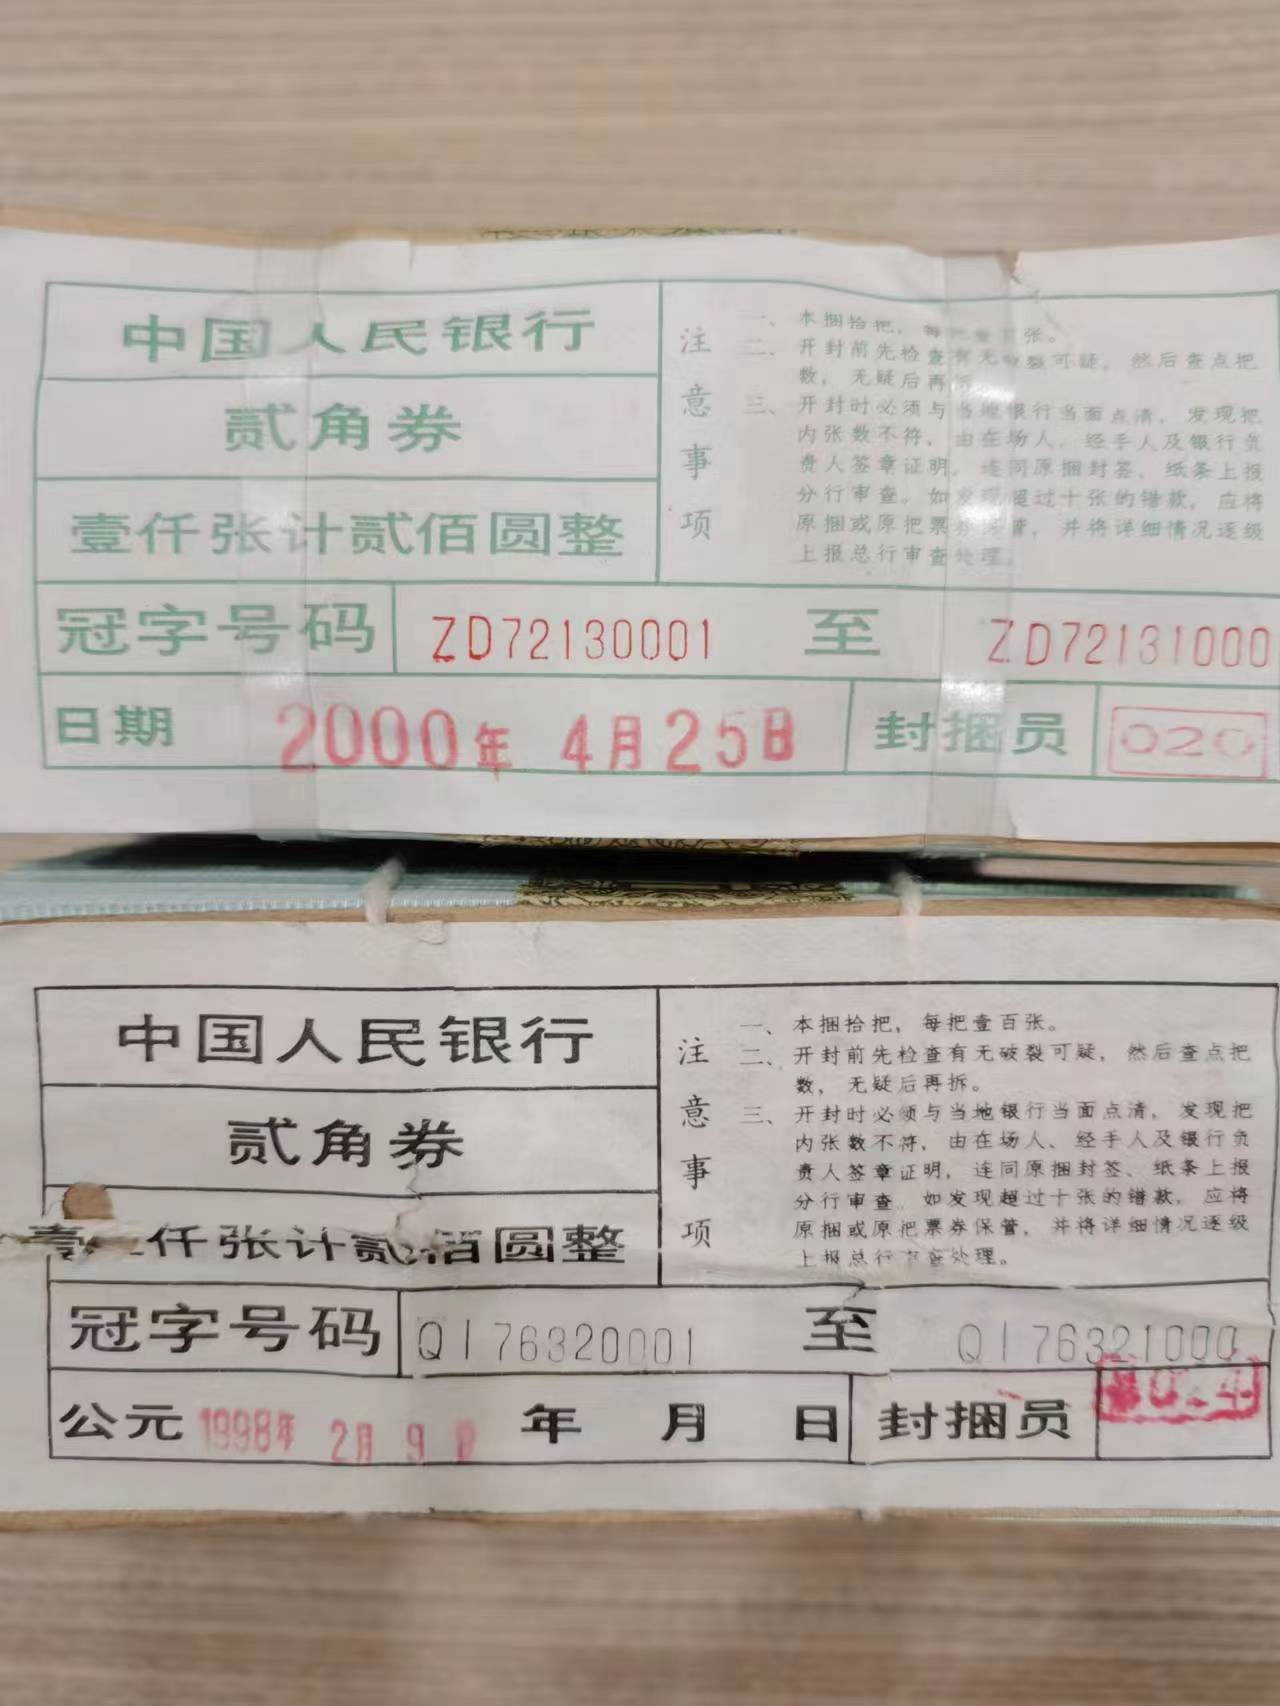 中国人民银行
贰角券
壹仟张计贰佰圆整
注意事项
一、本捆拾把，每把壹百张。
二、开封前先检查有无破裂可疑，然后查点把
数，无疑后再拆。
三、开封时必须与当地银行当面点清，发现把
内张数不符，由在场人、经手人及银行负
责人签章证明，连同原捆封签、纸条上报
分行审查。如发现超过十张的错款，应将
原捆或原把票券保管，并将详细情况逐级
上报总行审查处理。
冠字号码 ZD72130001 至 ZD72131000
日期 2000年 4月25日 封捆员 020
中国人民银行
贰角券
壹仟张计贰佰圆整
注意事项
一、本捆拾把，每把壹百张。
二、开封前先检查有无破裂可疑，然后查点把
数，无疑后再拆。
三、开封时必须与当地银行当面点清，发现把
内张数不符，由在场人、经手人及银行负
责人签章证明，连同原捆封签、纸条上报
分行审查。如发现超过十张的错款，应将
原捆或原把票券保管，并将详细情况逐级
上报总行审查处理。
冠字号码 QI76320001 至 QI76321000
公元 1998年 2月 9日 年 月 日 封捆员